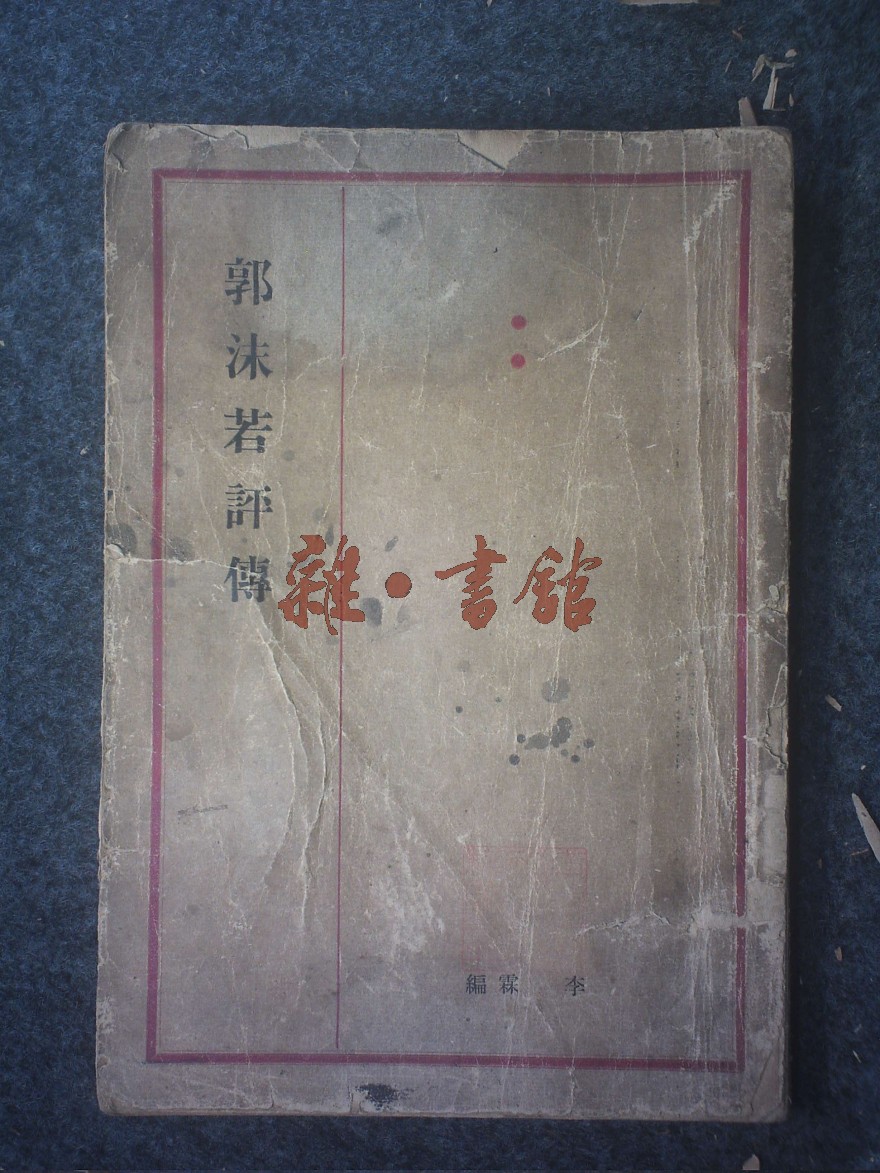 郭沫若評傳
雜·書舘
李霖編